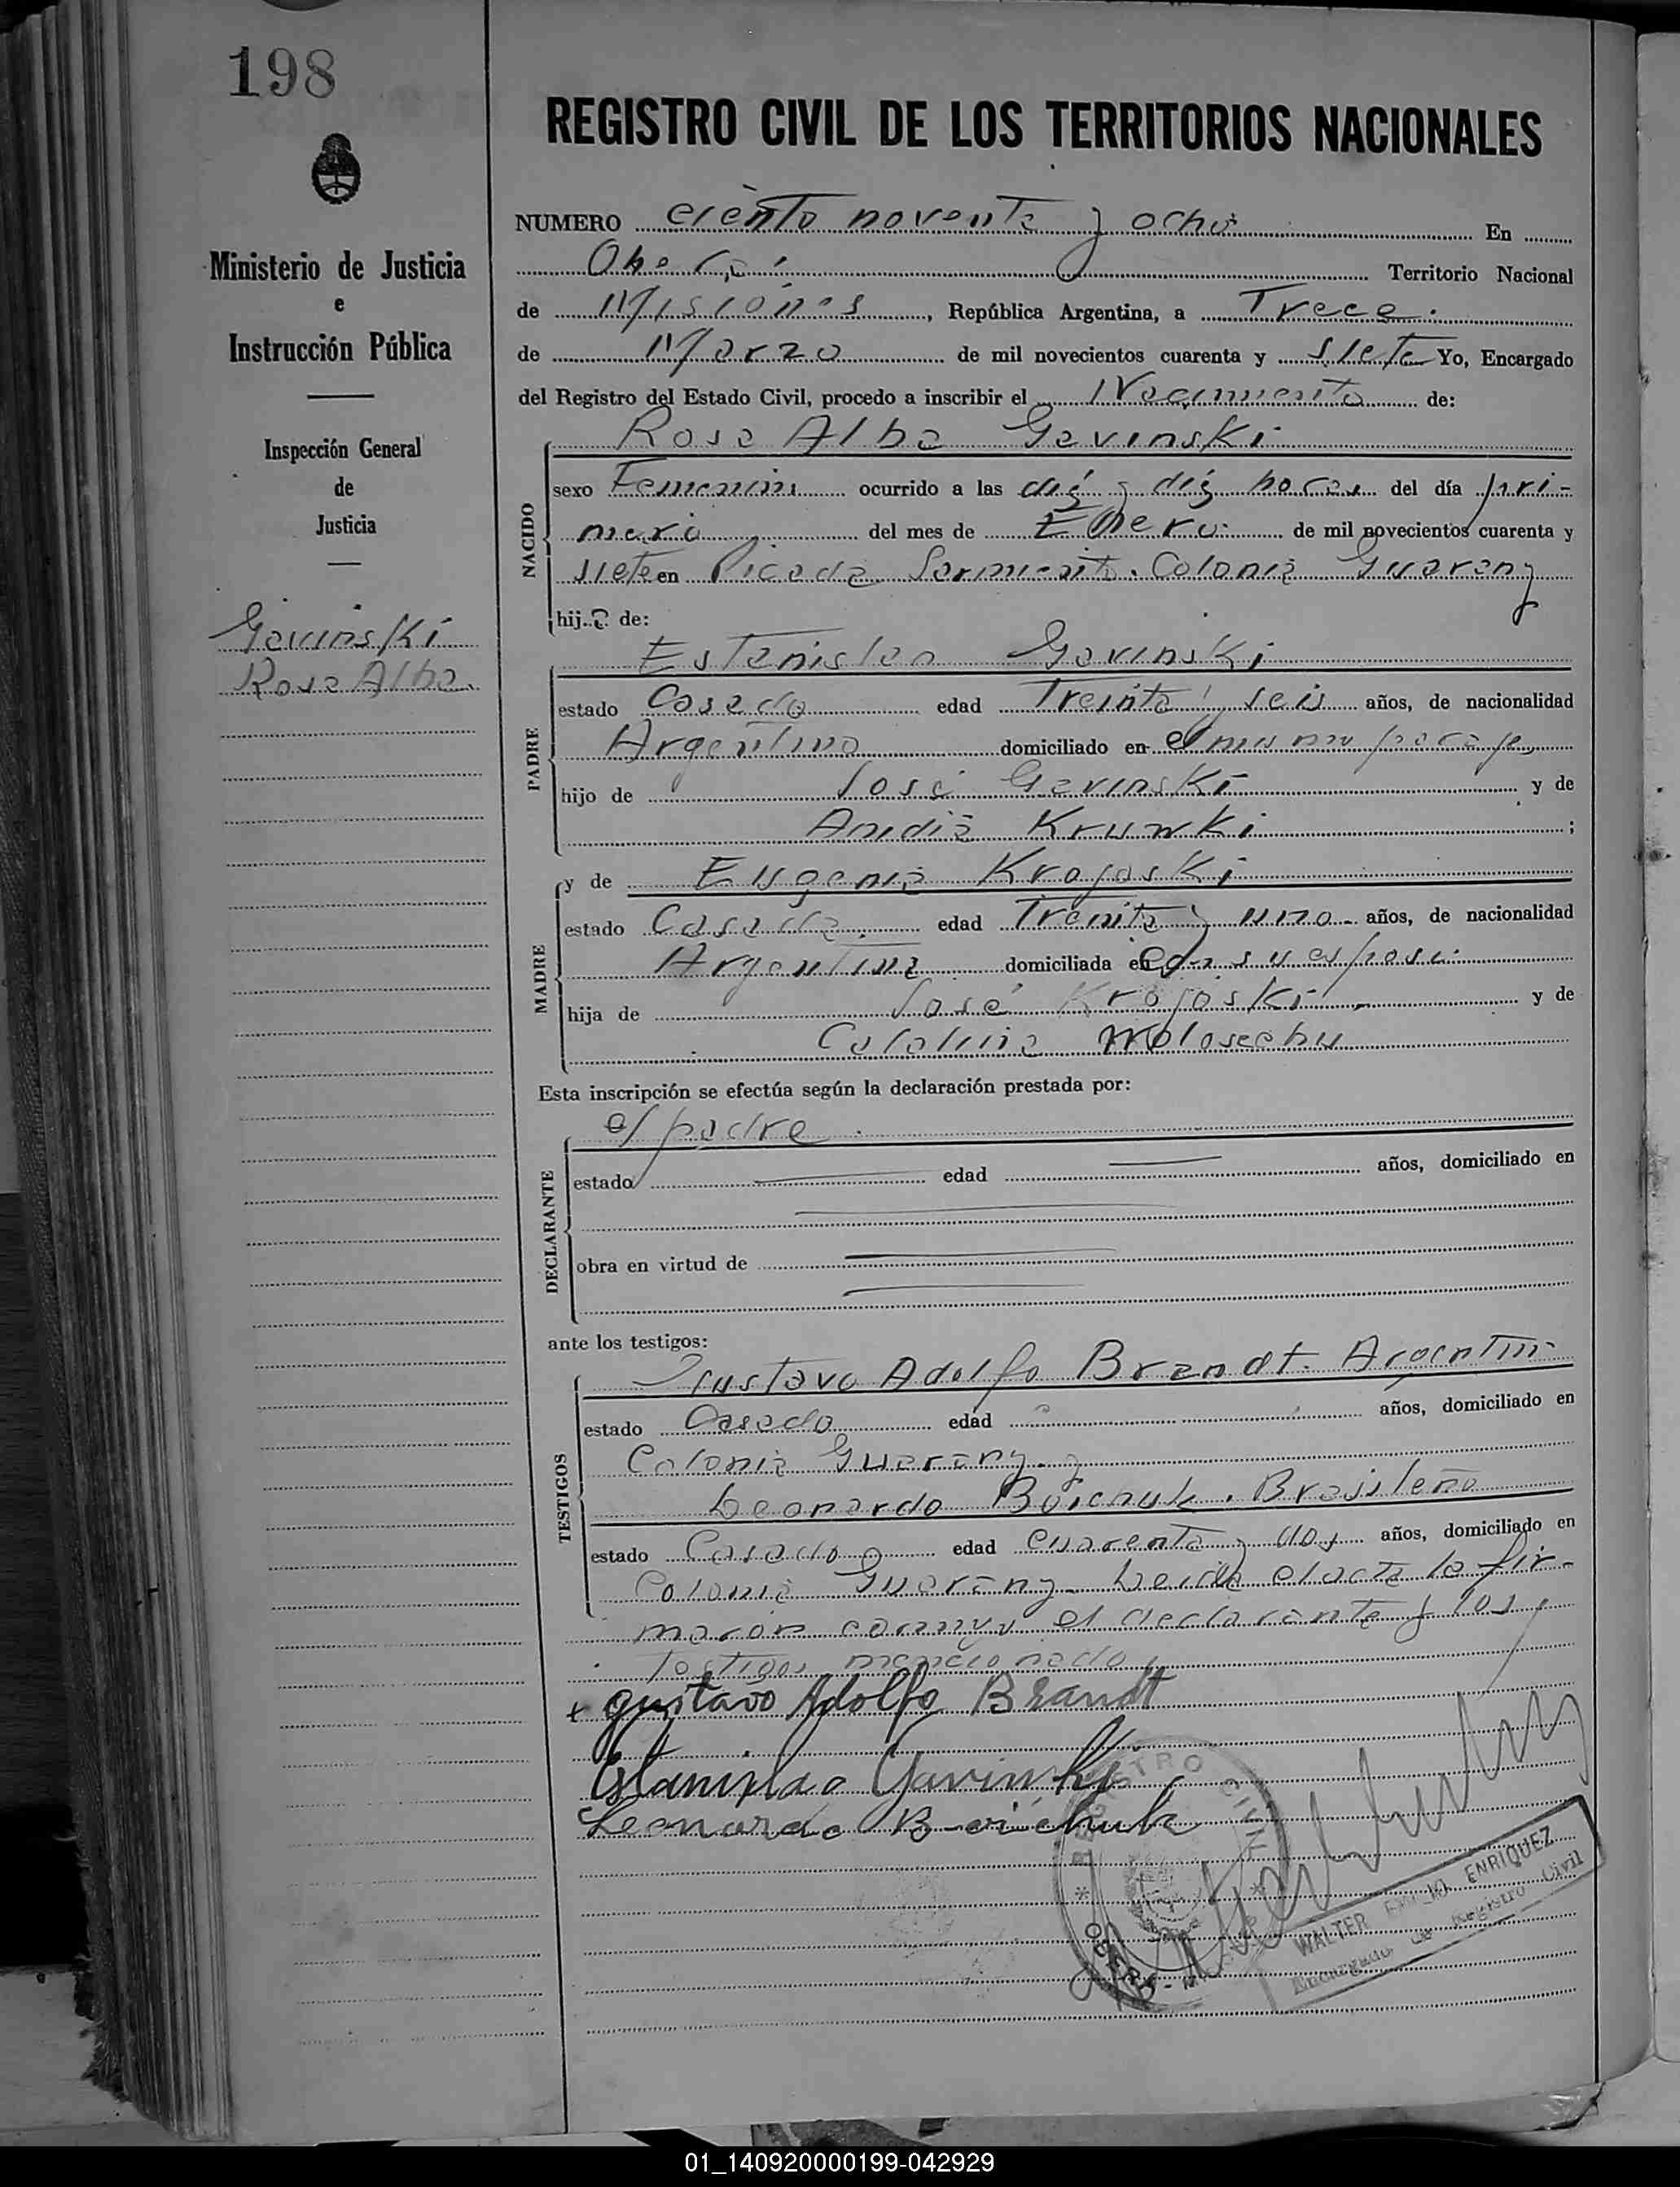 198
REGISTRO CIVIL DE LOS TERRITORIOS NACIONALES
Ministerio de Justicia
e
Instrucción Pública
Inspección General
de
Justicia
Gavinski
Rosa Alba.
NUMERO ciento noventa y ocho En
Oberá Territorio Nacional
de Misiones, República Argentina, a Trece
de Marzo de mil novecientos cuarenta y siete Yo, Encargado
del Registro del Estado Civil, procedo a inscribir el Nacimiento de:
NACIDO
Rosa Alba Gavinski
sexo Femenino ocurrido a las diéz y diéz horas del día pri-
mero del mes de Enero de mil novecientos cuarenta y
siete en Picada Sarmiento. Colonia Guarany
hija de:
PADRE
Estanislao Gavinski
estado Casado edad Treinta y seis años, de nacionalidad
Argentino domiciliado en el mismo paraje
hijo de José Gavinski y de
Anidia Kruwki ;
MADRE
y de Eugenia Krojoski
estado Casada edad Treinta y uno años, de nacionalidad
Argentina domiciliada en con su esposo
hija de José Krojoski y de
Catalina
Esta inscripción se efectúa según la declaración prestada por:
DECLARANTE
el padre
estado edad años, domiciliado en
obra en virtud de
ante los testigos:
TESTIGOS
Gustavo Adolfo Brandt. Argentino
estado Casado edad años, domiciliado en
Colonia Guarany y
Leonardo Boichuk. Brasileño
estado Casado edad cuarenta y dos años, domiciliado en
Colonia Guarany. Leida el acta la fir-
maron conmigo el declarante y los
testigos mencionados
+ gustavo Adolfo Brandt
Estanislao Gavinski
Leonardo Boichuk
REGISTRO CIVIL
OBERA
WALTER EMILIO ENRIQUEZ
Encargado de Registro Civil
01_140920000199-042929